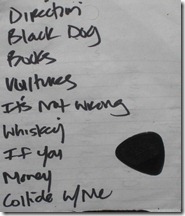 Direction
Black Dog
Books
Vultures
It's Not Wrong
Whiskey
If You
Money
Collide w/Me